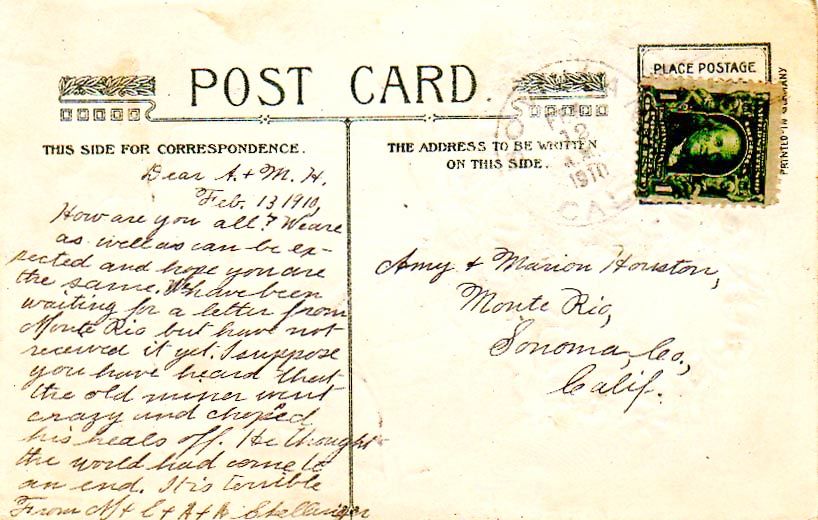 POST CARD.
PLACE POSTAGE
PRINTED IN GERMANY
THIS SIDE FOR CORRESPONDENCE.
THE ADDRESS TO BE WRITTEN
ON THIS SIDE.
12
1910
CAL
Dear A. & M. H.
Feb. 13 1910,
How are you all? We are
as well as can be ex-
pected and hope you are
the same. We have been
waiting for a letter from
Monte Rio but have not
received it yet. I suppose
you have heard that
the old miner went
crazy and choped
his heals off. He thought
the world had come to
an end. It is terrible
From M & C & A & A
Amy & Marion Houston,
Monte Rio,
Sonoma, Co.,
Calif.